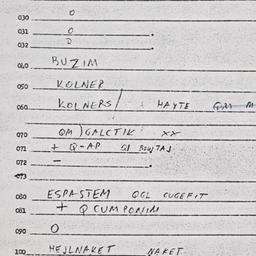 030 0
031 0
032 0
040 BUZIM
050 KOLNER
060 KOLNERS/ HAYTE
070 QM)GALCTIK xx
071 + Q-AP
072 -
073
080 ESPASTEM OGL CUGEFIT
081 + Q CUMPONIM
090 0
100 HEJLNAKET NAKET